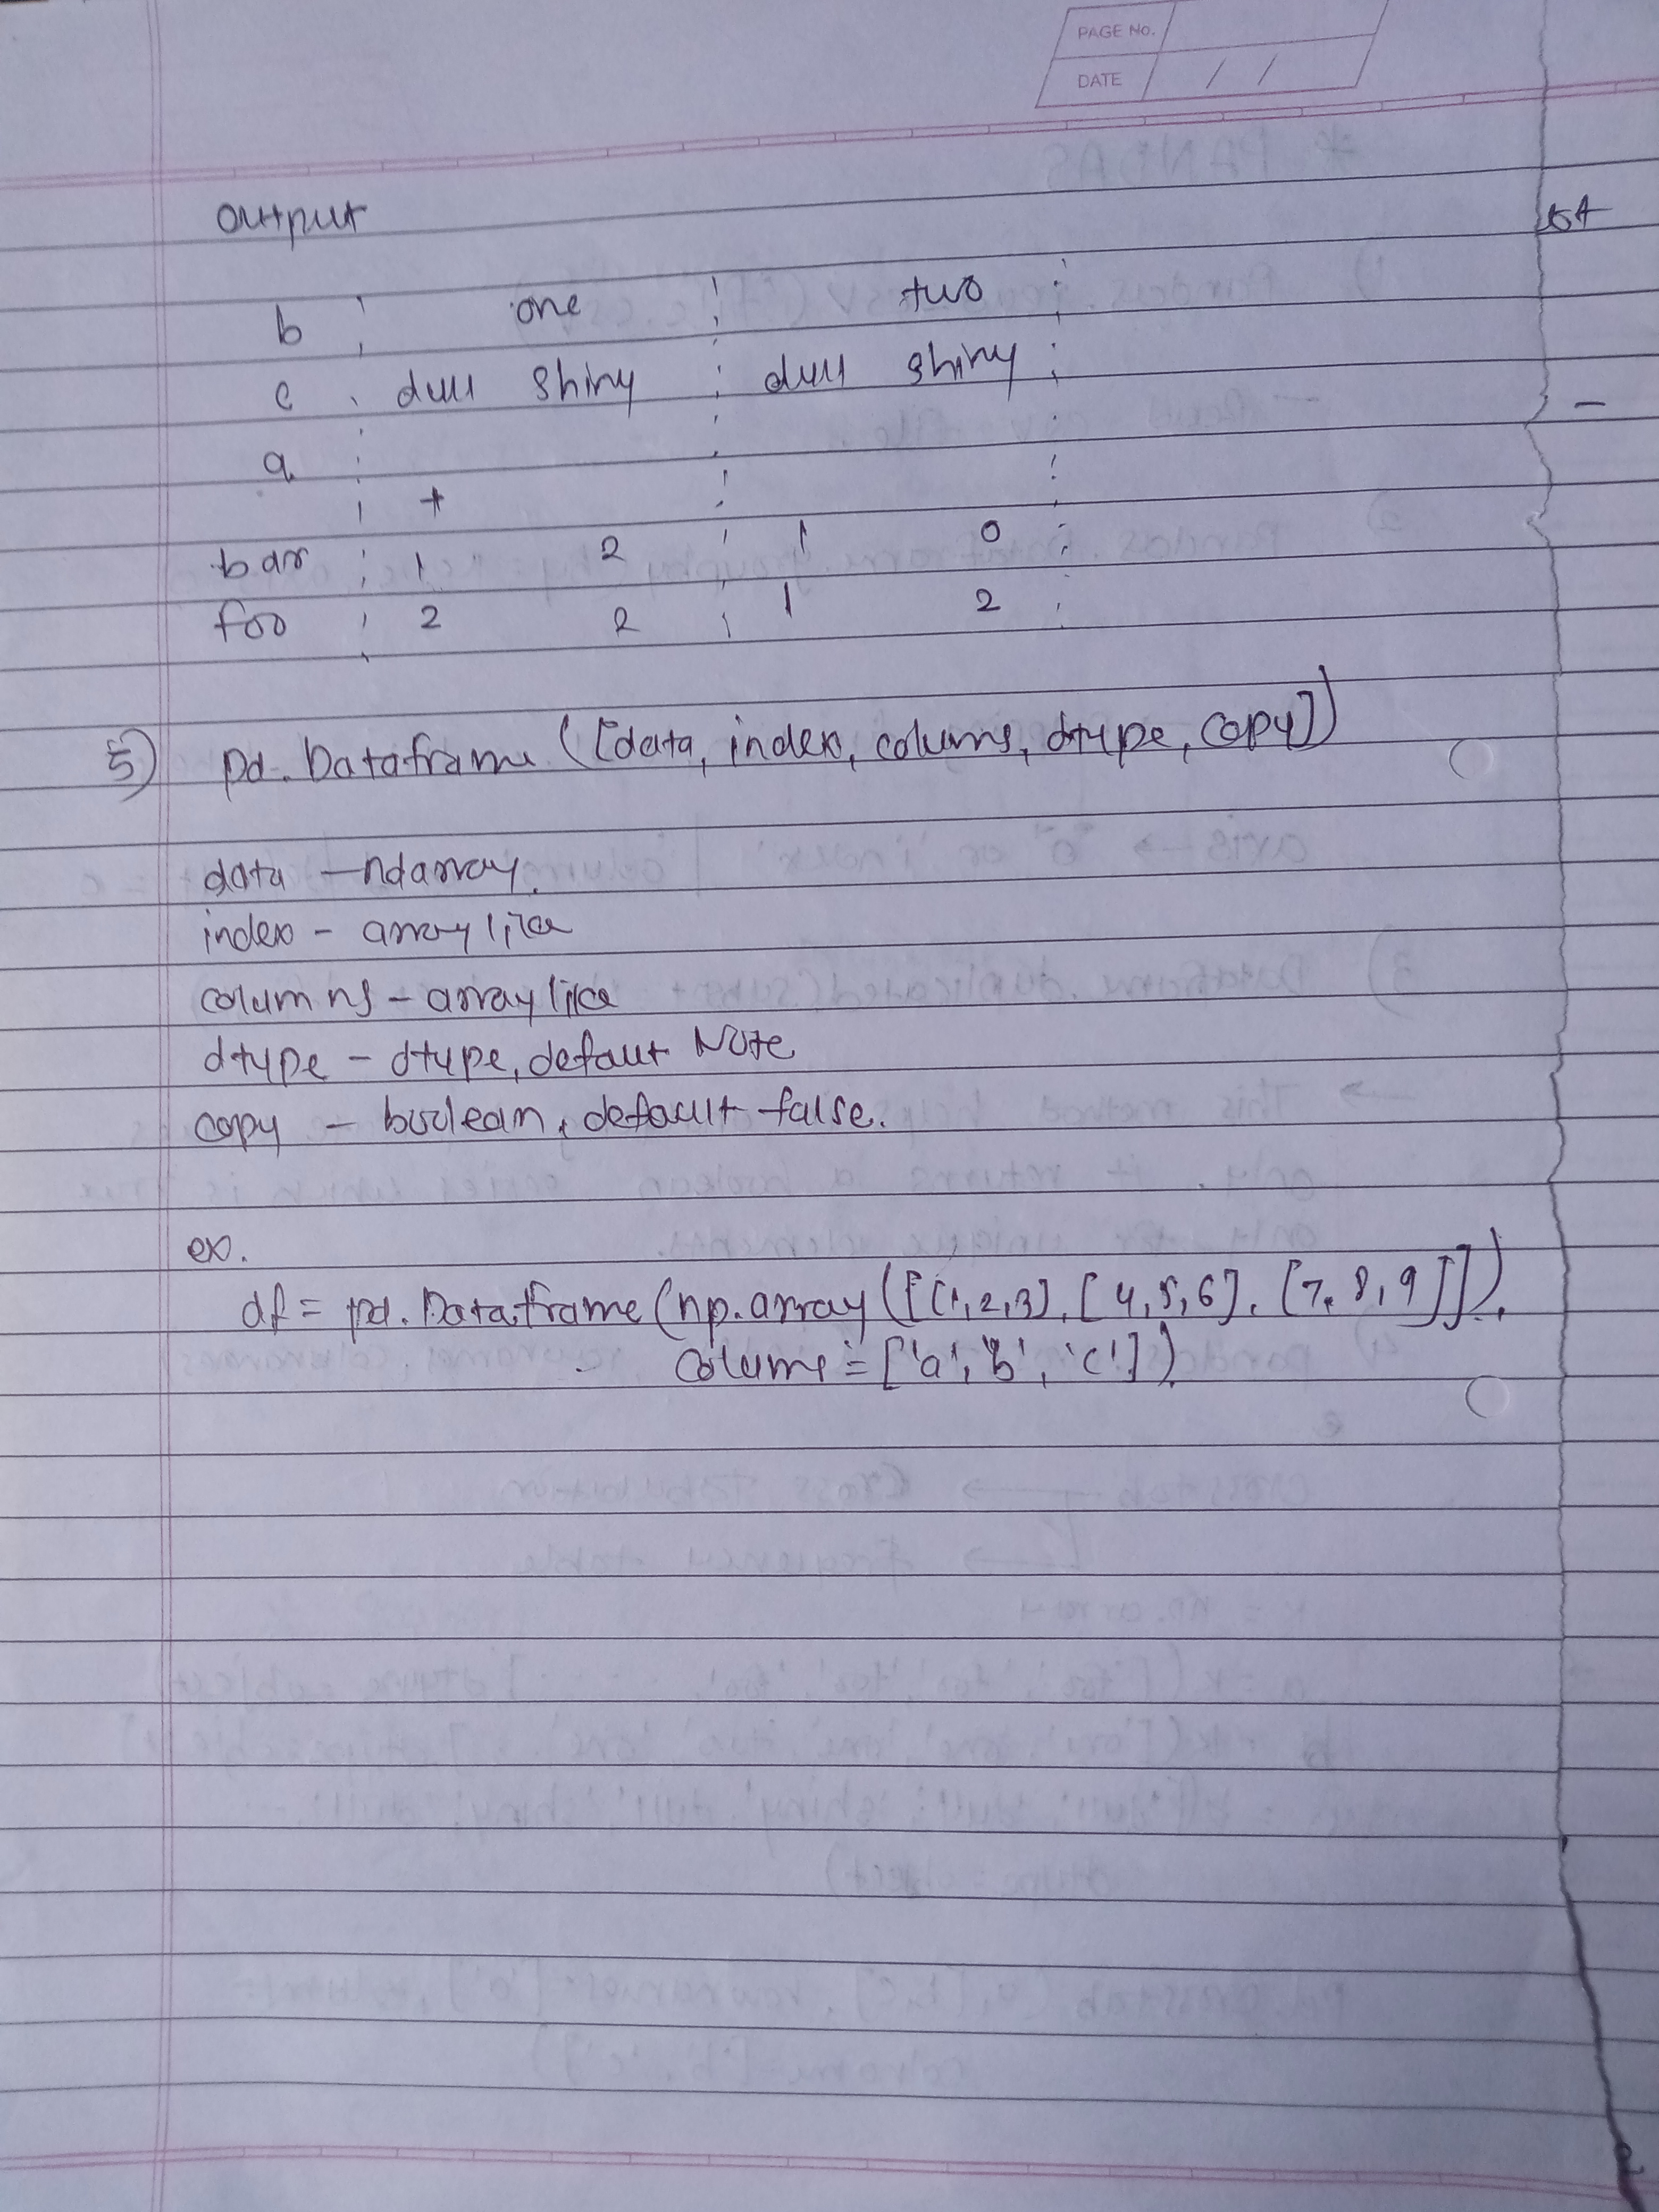 PAGE No.
DATE / /
output
b one two
c dull shiny dull shiny
a
+
bar 1 2 1 0
foo 2 2 1 2
5) pd. Dataframe ([data, index, colums, dtype, copy])
data - ndarray.
index - array like
columns - array like
dtype - dtype, defaut Note
copy - boolean, default false.
ex.
df = pd. Dataframe (np.array ([[1,2,3], [4,5,6], [7,8,9]]),
colums = ['a', 'b', 'c'])